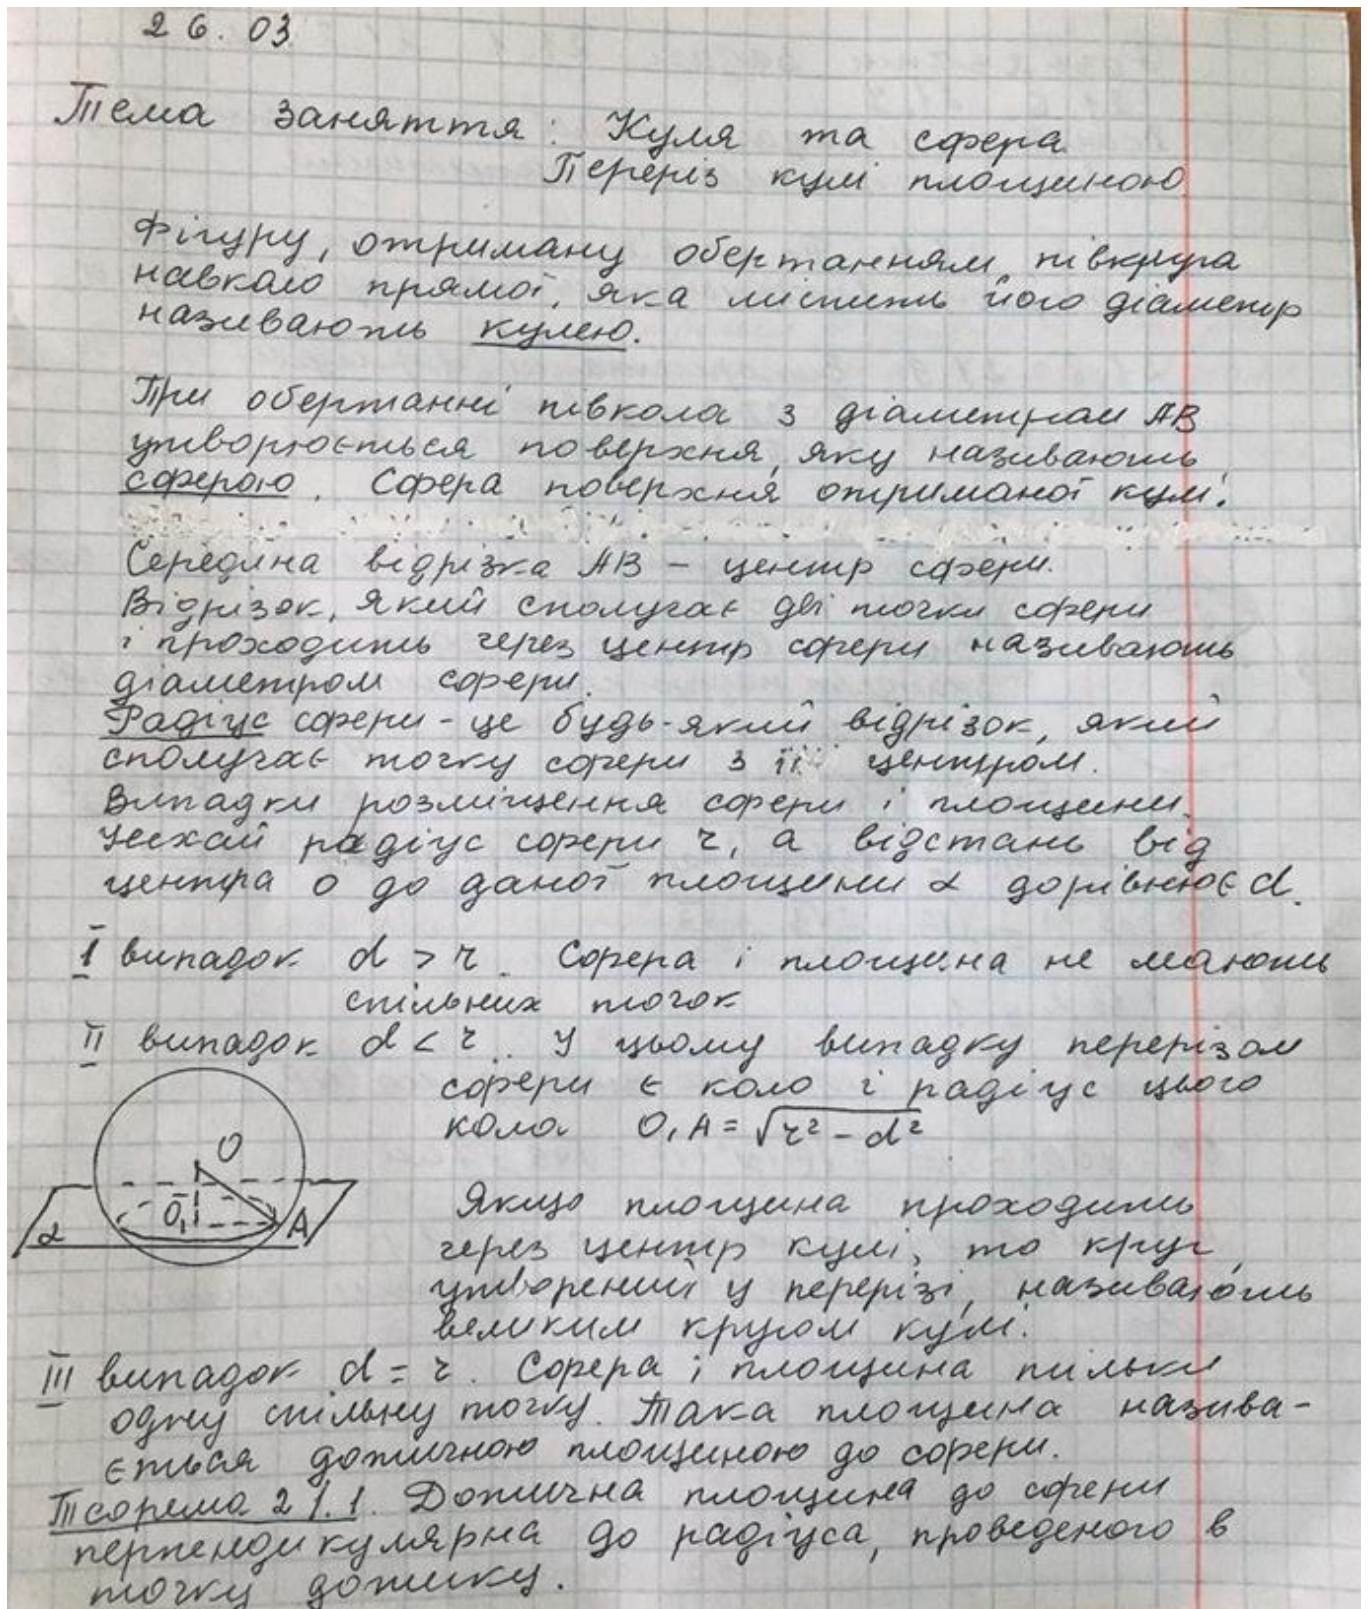 26.03
Тема заняття: Куля та сфера
Переріз кулі площиною
Фігуру, отриману обертанням півкруга
навколо прямої, яка містить його діаметр
називають кулею.
При обертанні півкола з діаметром АВ
утворюється поверхня, яку називають
сферою. Сфера поверхня отриманої кулі.
Середина відрізка АВ – центр сфери.
Відрізок, який сполучає дві точки сфери
і проходить через центр сфери називають
діаметром сфери.
Радіус сфери - це будь-який відрізок, який
сполучає точку сфери з її центром.
Випадки розміщення сфери і площини.
Нехай радіус сфери r, а відстань від
центра О до даної площини α дорівнює d.
I випадок d > r. Сфера і площина не мають
спільних точок
II випадок d < r. У цьому випадку перерізом
сфери є коло і радіус цього
кола O₁A = √r² - d²
O
O₁
A
α
Якщо площина проходить
через центр кулі, то круг,
утворений у перерізі, називають
великим кругом кулі.
III випадок d = r. Сфера і площина тільки
одну спільну точку. Така площина назива-
ється дотичною площиною до сфери.
Теорема 21.1. Дотична площина до сфери
перпендикулярна до радіуса, проведеного в
точку дотику.